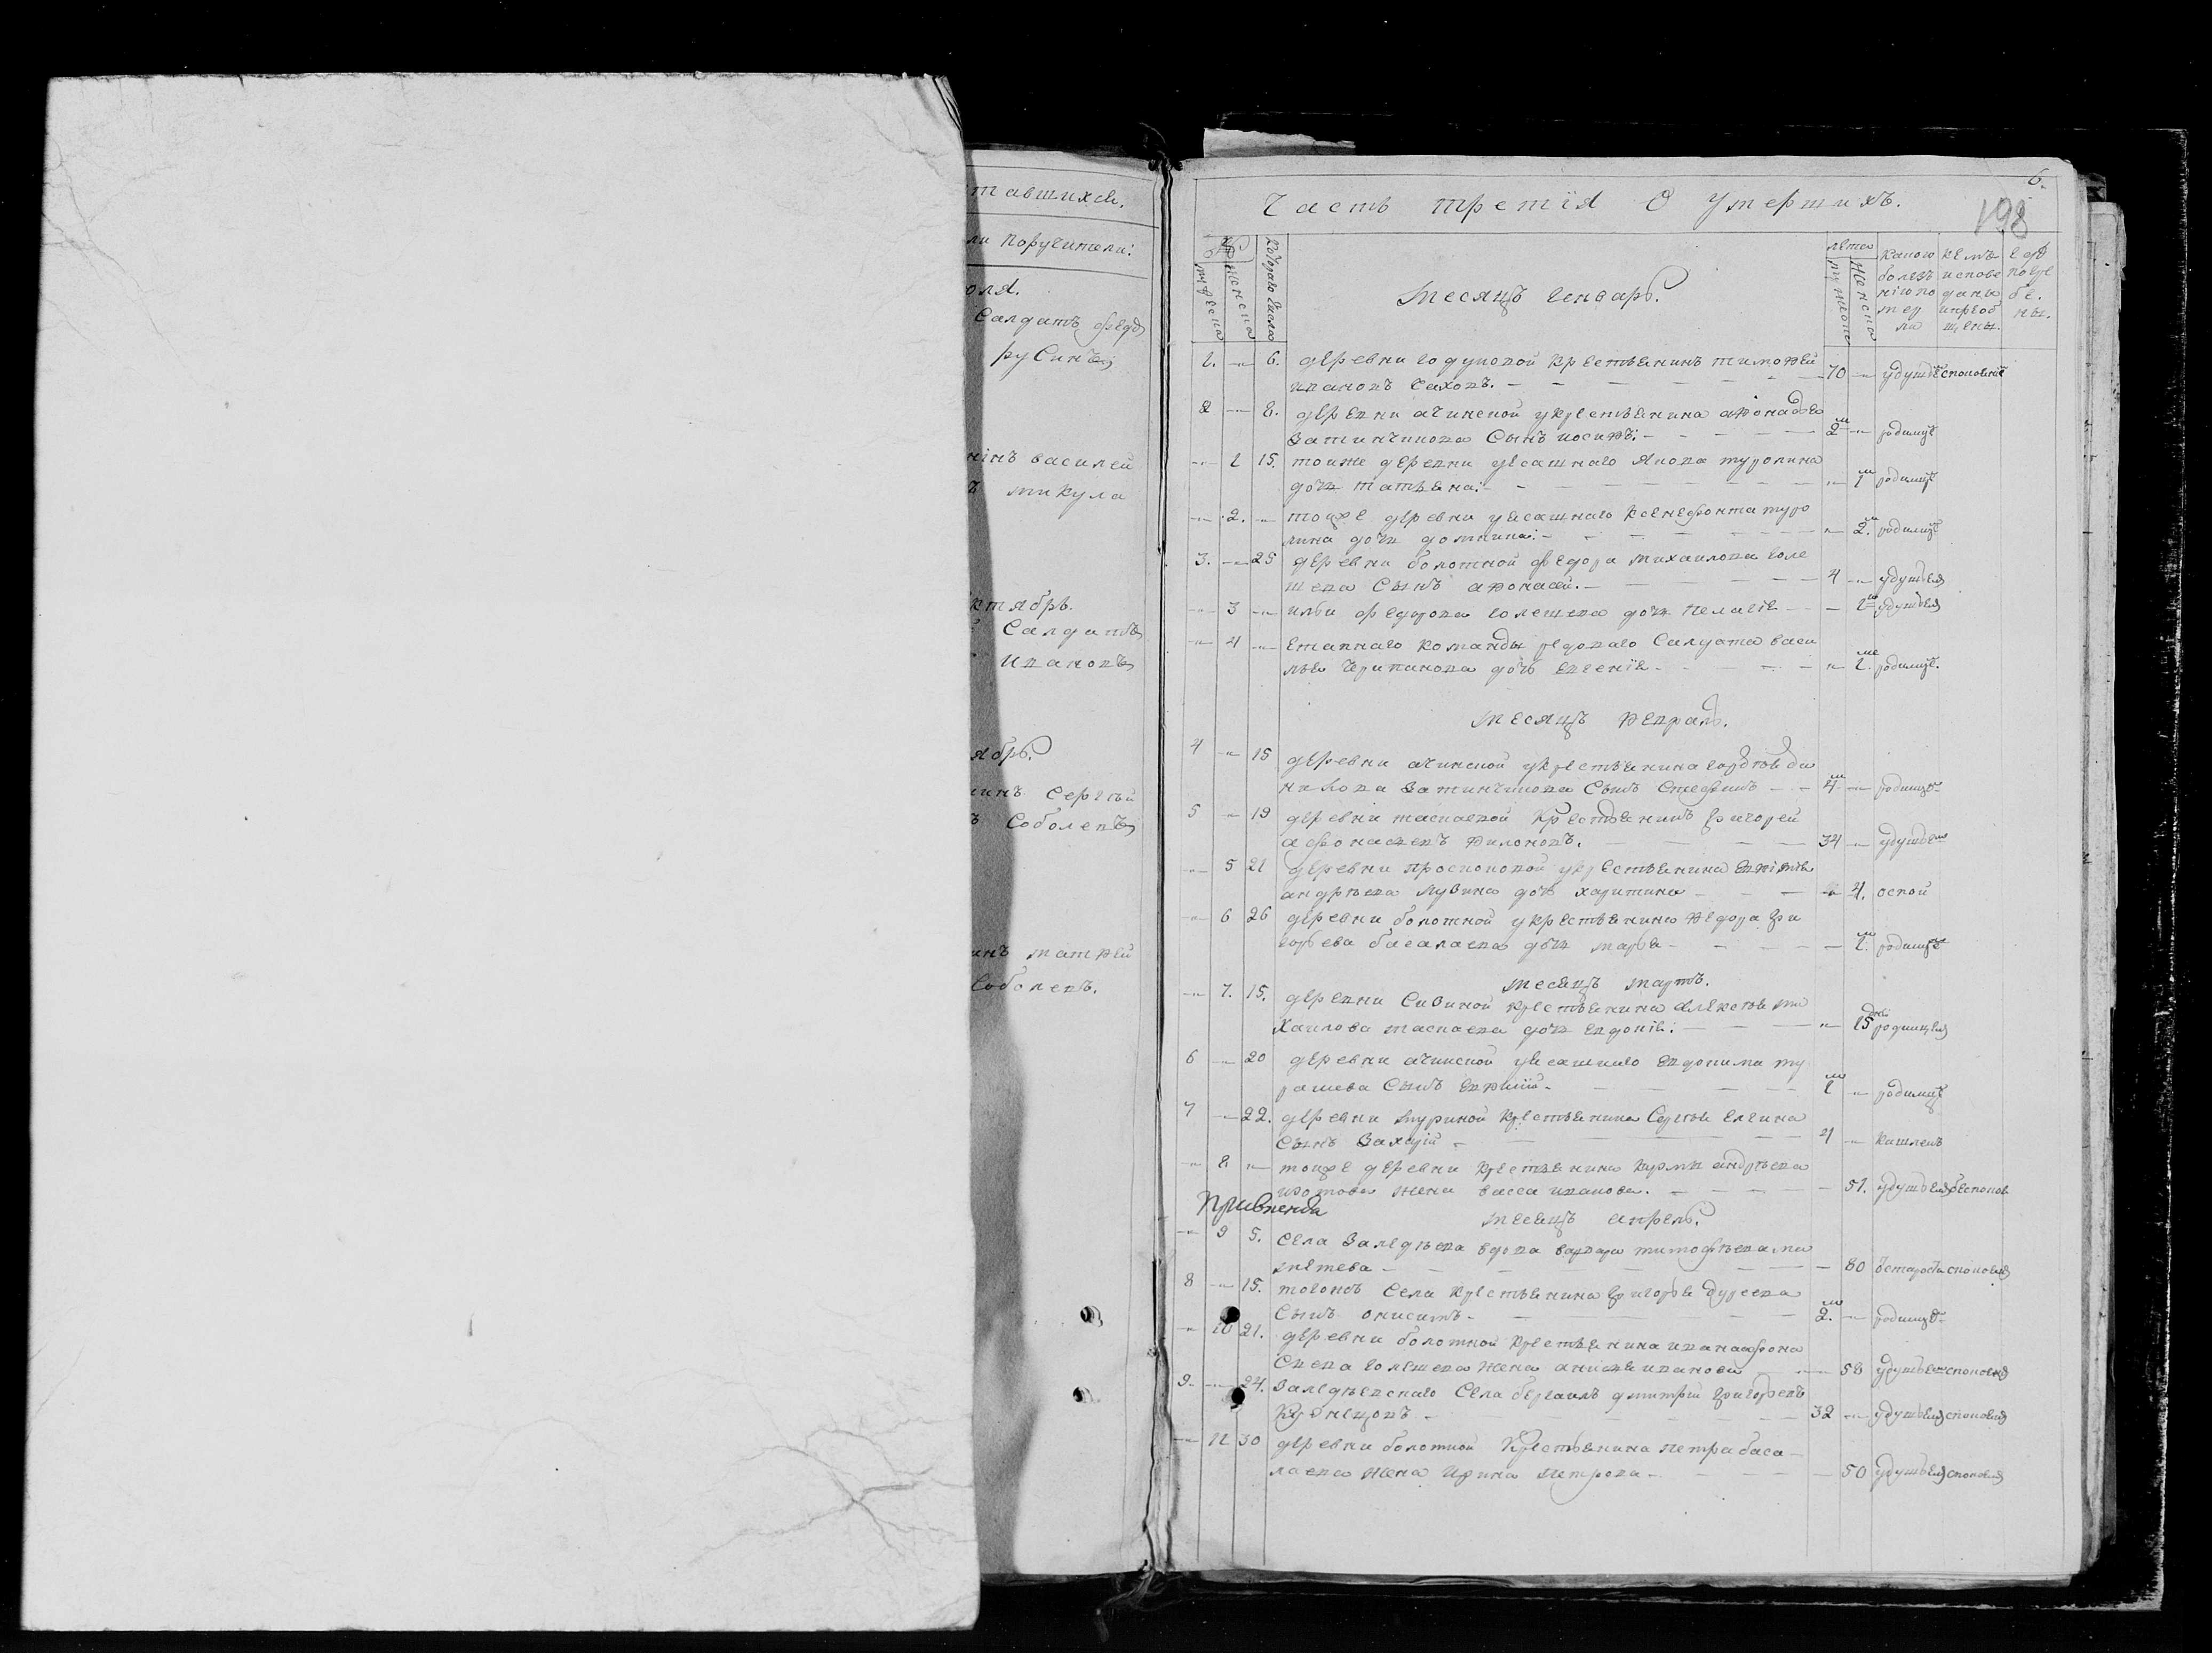 тавшихся.
ли Поручители:
оля.
Салдатъ федо
русинъ
нінъ василей
ъ микула
ктябрь.
Салдатъ
Ивановъ
ябрь.
нинъ Сергѣй
ъ Соболевъ
инъ матвей
Соболевъ.
6.
198
Часть третія О умершихъ.
№
мужеска
женска
Котораго Числа
Месяцъ Генварь.
лета
мужеска
женска
какою болезнію померли
кемъ исповеданы и приобщены.
где погребены.
1. — 6. деревни Годуновой крестьянинъ тимофей
ивановъ Чеховъ. — 70 — удушье споповеніе
2 — 8. деревни ачинской у крестьянина афонасья
Затинчикова Сынъ иосифъ: — 2 м — родимце
— 1 15. тоиже деревни у ясашнаго Якова туролина
дочь татьяна: — 1 м родимце
— 2. — тояже деревни у ясашнаго Ксенефонта туро
лина дочь домнина: — 2. м родимце
3. — 25 деревни болотной федора михаилова Голе
щева Сынъ афонасей. — 4 — удушьемъ
— 3 — ильи федорова Голещева дочь пелагіе — 1 м удушьемъ
— 4 — Етапнаго команды редоваго Салдата васи
лья Черипанова дочь евгеніе — 1. ме родимце.
месяцъ февраль.
4 — 15 деревни ачинской у крестьянина гордѣе да
нилова Затинчикова Сынъ Стефанъ — 4 м — родимце
5 — 19 деревни таспаевой крестьянинъ григорей
афонасьевъ филоновъ. — 34 — удушье
— 5 21 деревни проскоковой у крестьянина евгімѣе
андрѣева лубина дочь харитина — 4. оспой
— 6 26 деревни болотной у крестьянина федора гри
горьева басалаева дочь марье — 1. м родимце
месяцъ мартъ.
— 7. 15. деревни Сибиной крестьянина алексѣе ми
хаилова таспаева дочь евдокіе: — 15 дней родимцемъ
6 — 20 деревни ачинской у ясашнаго евдокима ту
рашева Сынъ евфимій — 1 м — родимце
7 — 22. деревни туриной крестьянина Сергѣе елгина
Сынъ Захарій — 4 — кашлемъ
— 8 — тояже деревни крестьянина кузмы андрѣева
изотова жена васса иванова. — 51. удушьемъ споповемъ
месяцъ апрель.
— 9 5. Села Заледѣева вдова варвара тимофѣева ма
метева — 80 от старости споповемъ
8 — 15. тогожъ Села крестьянина григорье бурсева
Сынъ онисимъ — 2. м — родимце
— 10 21. деревни болотной крестьянина иванафона
Сиева Голещева жена анисье иванова — 58 удушьемъ споповемъ
9. — 24. Заледѣевскаго Села бергаилъ дмитрій григорьевъ
кузнецовъ — 32 — удушьемъ споповемъ
— 11 30 деревни болотной крестьянина петра баса
лаева жена Ирина петрова — 50 удушьемъ споповемъ